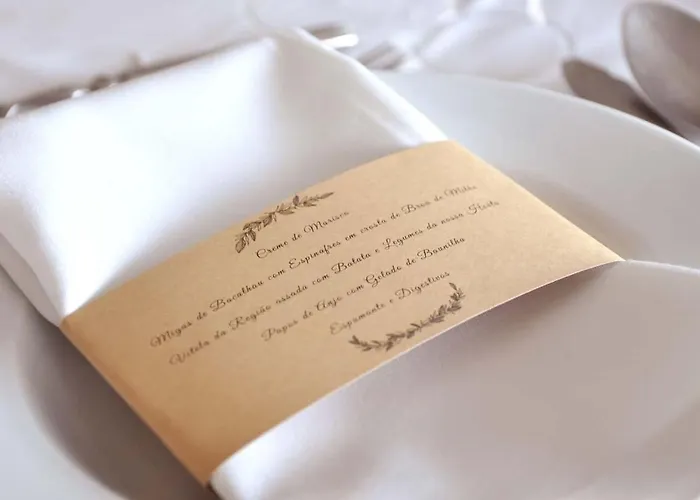 Creme de Marisco
Migas de Bacalhau com Espinafres em crosta de Broa de Milho
Vitela da Região assada com Batata e Legumes da nossa Horta
Papos de Anjo com Gelado de Baunilha
Espumante e Digestivos